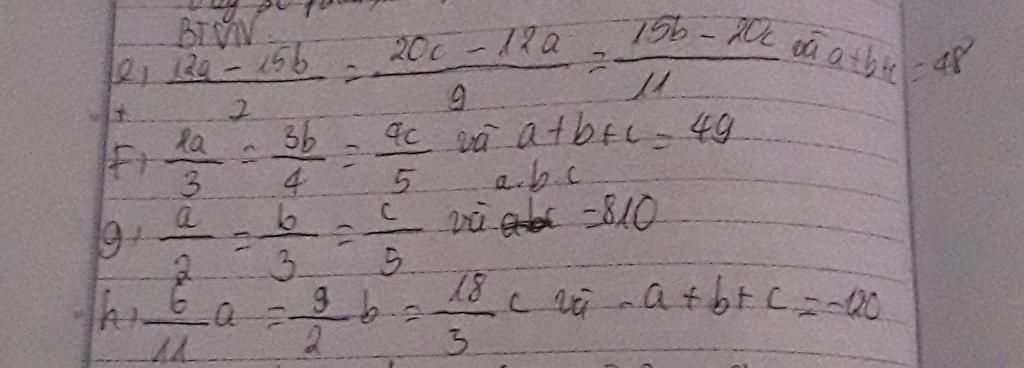 BTVN
e, \frac{12a - 15b}{2} = \frac{20c - 12a}{9} = \frac{15b - 20c}{11} và a+b+c = 48
f, \frac{2a}{3} = \frac{3b}{4} = \frac{4c}{5} và a + b + c = 49
g, \frac{a}{2} = \frac{b}{3} = \frac{c}{5} và a.b.c = 810
h, \frac{6}{11} a = \frac{9}{2} b = \frac{18}{3} c và - a + b + c = -120